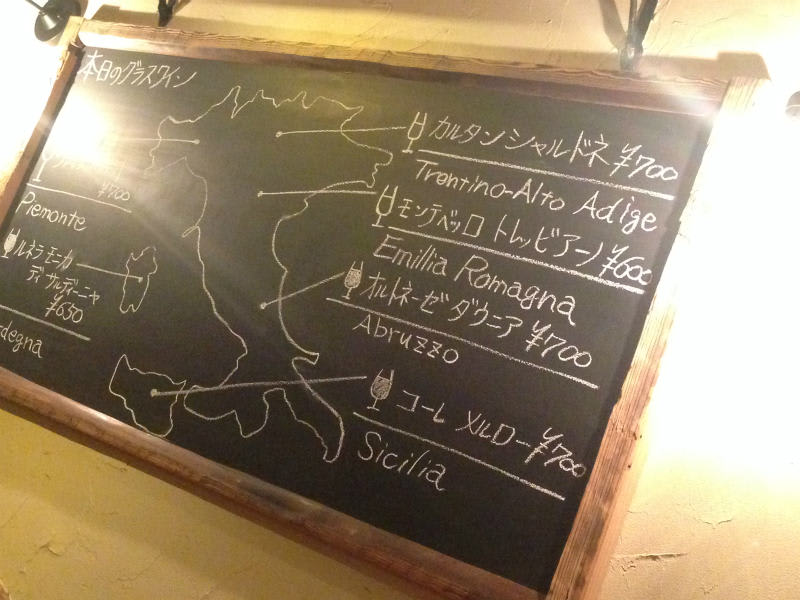 本日のグラスワイン
¥700
Piemonte
ルネラ モニカ
ディ サルディーニャ
¥650
degna
カルタン シャルドネ ¥700
Trentino-Alto Adige
モンテベッロ トレッビアーノ ¥600
Emillia Romagna
オルトネーゼ ダウニア ¥700
Abruzzo
コーレ メルロー ¥700
Sicilia